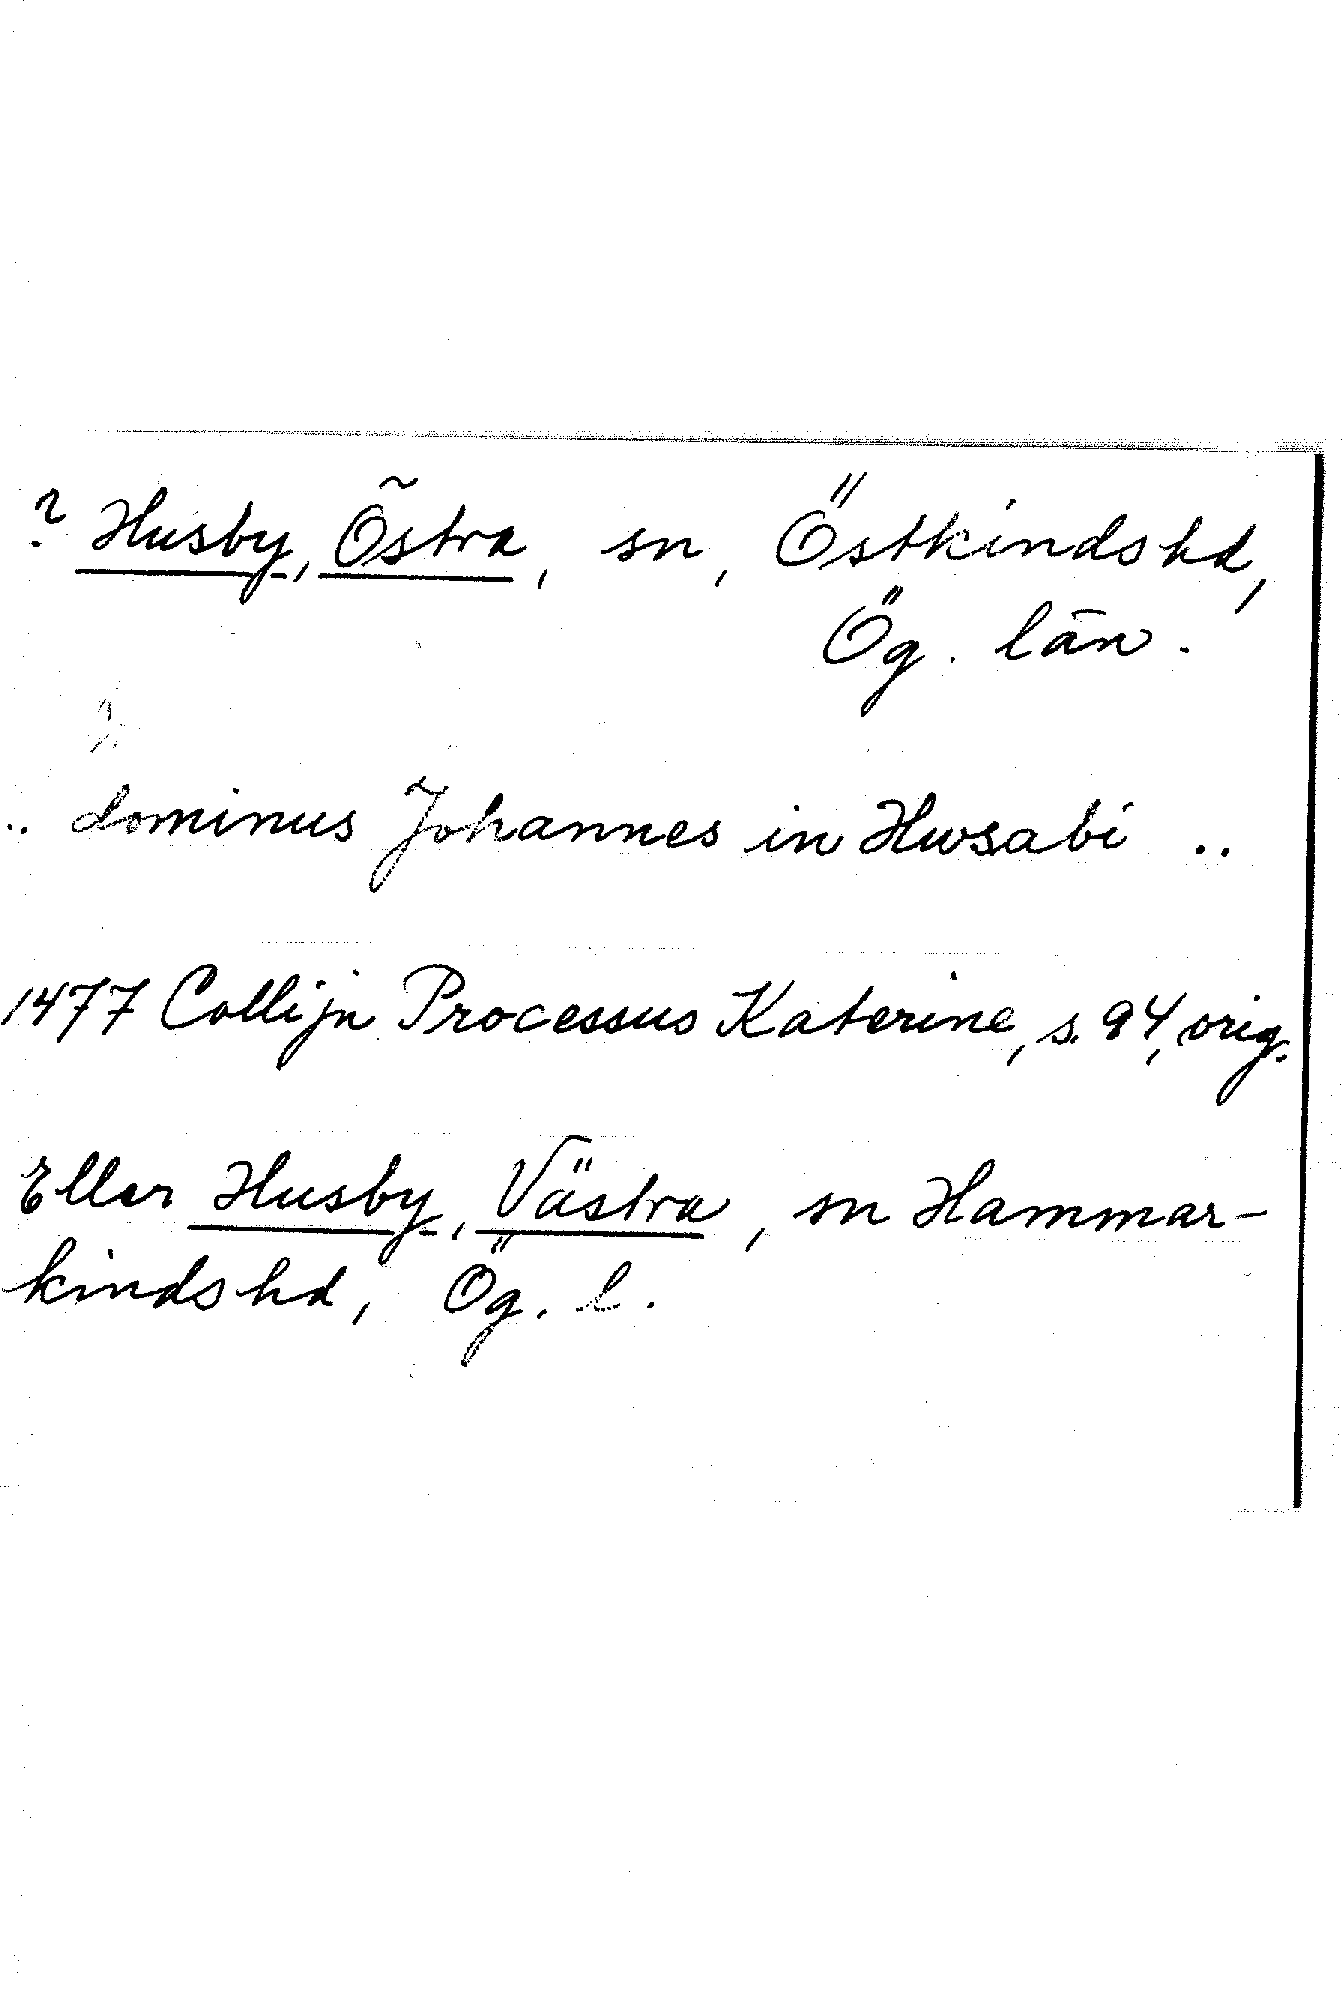 ? Husby, Östra, sn, Östkindshd,
Ög. län.
.. dominus Johannes in Hwsabi ..
1477 Collijn Processus Katerine, s. 94, orig.
Eller Husby, Västra, sn Hammar-
kindshd, Ög. l.